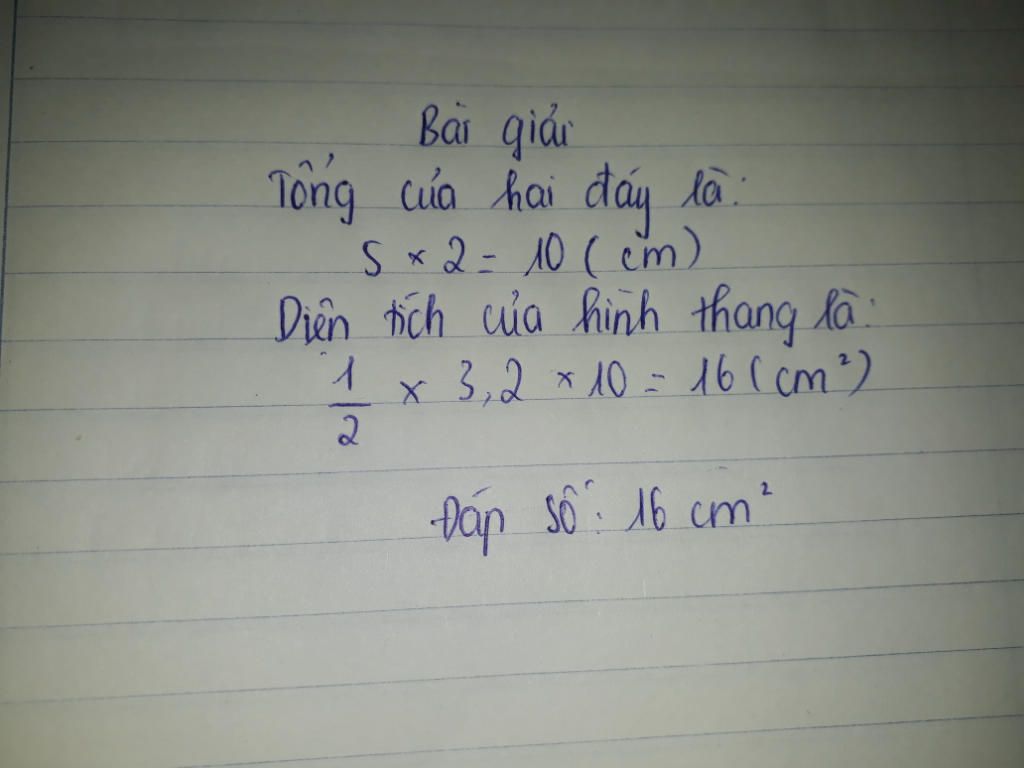 Bài giải
Tổng của hai đáy là:
5 × 2 = 10 (cm)
Diện tích của hình thang là:
1/2 × 3,2 × 10 = 16 (cm²)
Đáp số: 16 cm²